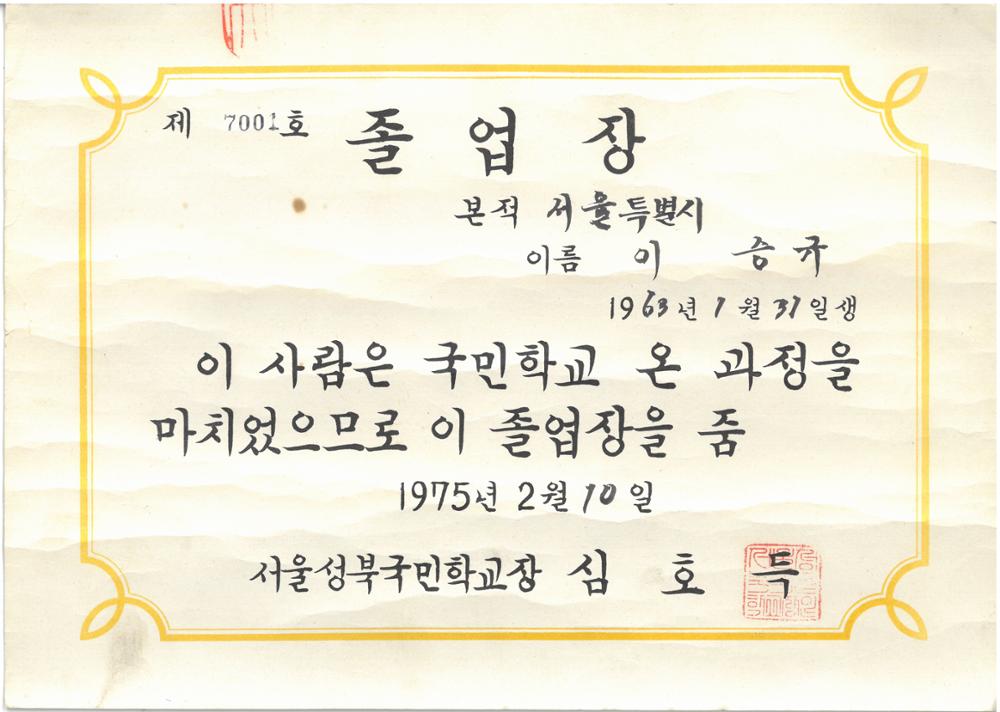 제 7001호
졸 업 장
본적 서울특별시
이름 이 승 규
1963년 1월 31일생
이 사람은 국민학교 온 과정을
마치었으므로 이 졸업장을 줌
1975년 2월 10일
서울성북국민학교장 심 호 득